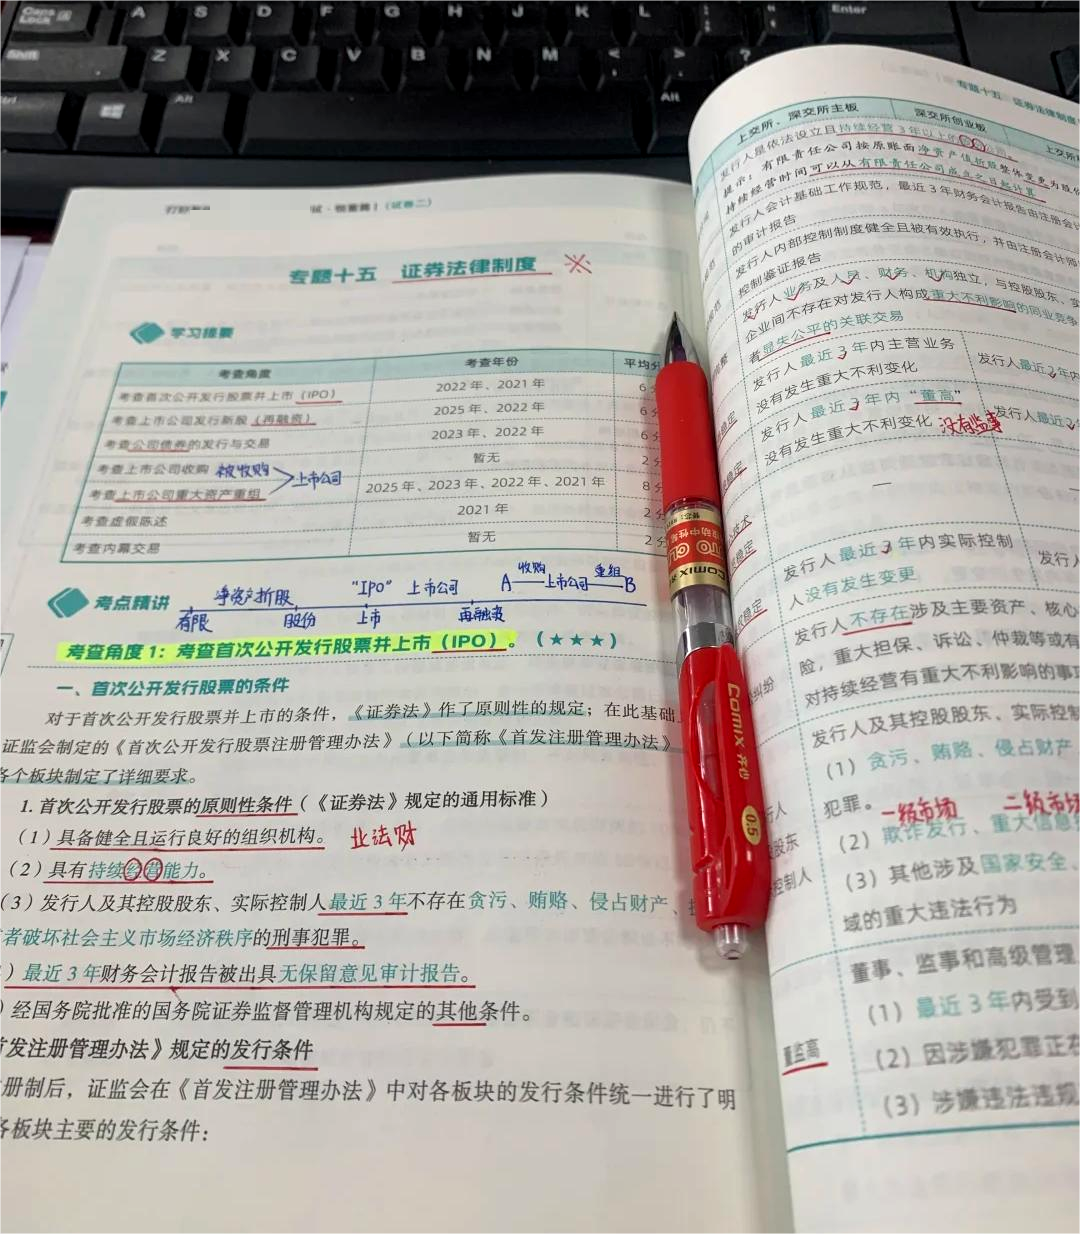 Caps Lock A S D F G H J K L Enter
Shift Z X C V B N M < > ?
Alt Alt
试·（试卷二）
专题十五 证券法律制度
学习提要
考查角度 考查年份 平均分
考查首次公开发行股票并上市（IPO） 2022 年、2021 年 6 分
考查上市公司发行新股（再融资） 2025 年、2022 年 6 分
考查公司债券的发行与交易 2023 年、2022 年 6 分
考查上市公司收购 被收购 暂无 2 分
上市公司
考查上市公司重大资产重组 2025 年、2023 年、2022 年、2021 年 8 分
考查虚假陈述 2021 年 2 分
考查内幕交易 暂无 2 分
考点精讲
净资产折股 “IPO” 上市公司 A 收购 上市公司 重组 B
有限 股份 上市 再融资
考查角度 1：考查首次公开发行股票并上市（IPO）。（★★★）
一、首次公开发行股票的条件
对于首次公开发行股票并上市的条件，《证券法》作了原则性的规定；在此基础
证监会制定的《首次公开发行股票注册管理办法》（以下简称《首发注册管理办法》
各个板块制定了详细要求。
1. 首次公开发行股票的原则性条件（《证券法》规定的通用标准）
（1）具备健全且运行良好的组织机构。 业法财
（2）具有持续经营能力。
（3）发行人及其控股股东、实际控制人最近 3 年不存在贪污、贿赂、侵占财产、
者破坏社会主义市场经济秩序的刑事犯罪。
）最近 3 年财务会计报告被出具无保留意见审计报告。
）经国务院批准的国务院证券监督管理机构规定的其他条件。
首发注册管理办法》规定的发行条件
册制后，证监会在《首发注册管理办法》中对各板块的发行条件统一进行了明
各板块主要的发行条件：
专题十五 证券法律制度
上交所、深交所主板 深交所创业板 上交所
发行人是依法设立且持续经营 3 年以上的
提示：有限责任公司按原账面净资产值折股整体变更为股份
持续经营时间可以从有限责任公司成立之日起计算
发行人会计基础工作规范，最近 3 年财务会计报告由注册会计
的审计报告
发行人内部控制制度健全且被有效执行，并由注册会计师
控制鉴证报告
发行人业务及人员、财务、机构独立，与控股股东、实
企业间不存在对发行人构成重大不利影响的同业竞争
者显失公平的关联交易
发行人最近 3 年内主营业务 发行人最近 2 年内
没有发生重大不利变化
发行人最近 3 年内“董高” 发行人最近 2
没有发生重大不利变化 没有监事
—
技术
稳定
发行人最近 3 年内实际控制 发行人
人没有发生变更
发行人不存在涉及主要资产、核心
险，重大担保、诉讼、仲裁等或有
对持续经营有重大不利影响的事项
纠纷
发行人及其控股股东、实际控制
（1）贪污、贿赂、侵占财产
犯罪。 一级市场 二级市场
（2）欺诈发行、重大信息
股东
（3）其他涉及国家安全、
控制人
域的重大违法行为
董事、监事和高级管理
（1）最近 3 年内受到
董监高
（2）因涉嫌犯罪正在
（3）涉嫌违法违规
COMIX
COMIX 齐心
0.5